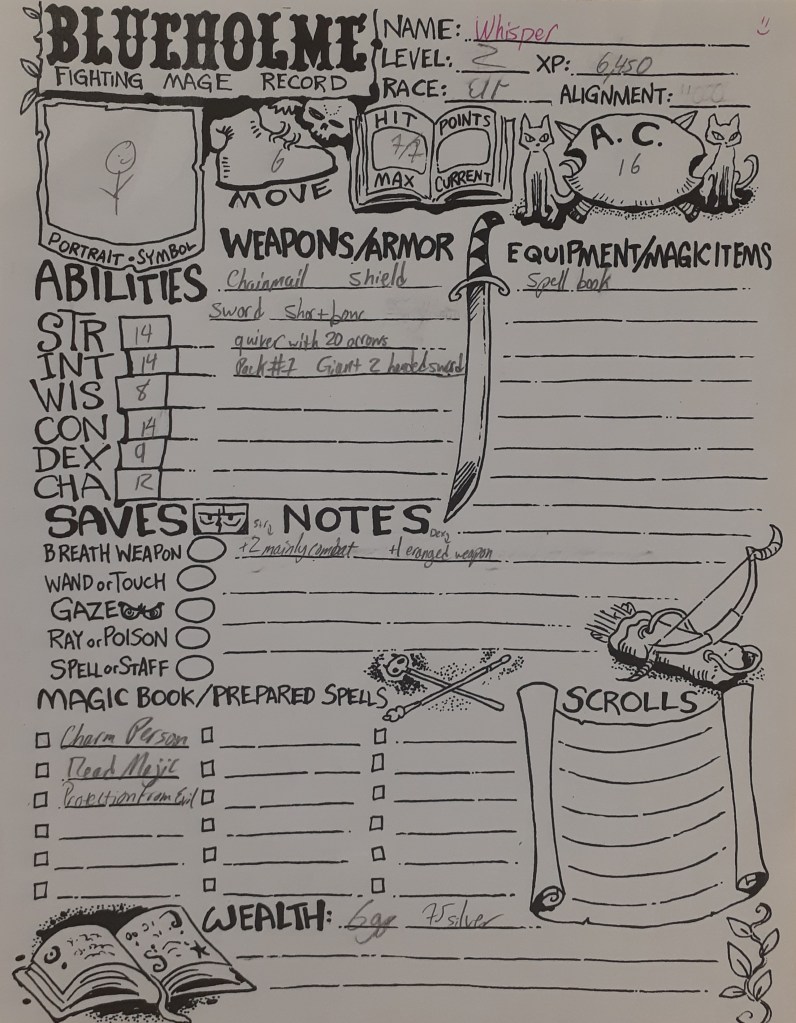 BLUEHOLME
FIGHTING MAGE RECORD
NAME: Whisper
LEVEL: 2 XP: 6,450
RACE: elf ALIGNMENT:
PORTRAIT • SYMBOL
6
MOVE
HIT POINTS
7/7
MAX CURRENT
A.C.
16
ABILITIES
STR 14
INT 14
WIS 8
CON 14
DEX 9
CHA 12
WEAPONS/ARMOR
Chainmail shield
sword short bow
quiver with 20 arrows
Pack #7 Giant 2 handed sword
EQUIPMENT/MAGIC ITEMS
Spell book
SAVES
BREATH WEAPON
WAND or TOUCH
GAZE
RAY or POISON
SPELL or STAFF
NOTES
+2 mainly combat +1 eranged weapon
MAGIC BOOK/PREPARED SPELLS
Charm Person
Read Majic
Protection From Evil
SCROLLS
WEALTH: 6gp 75 silver